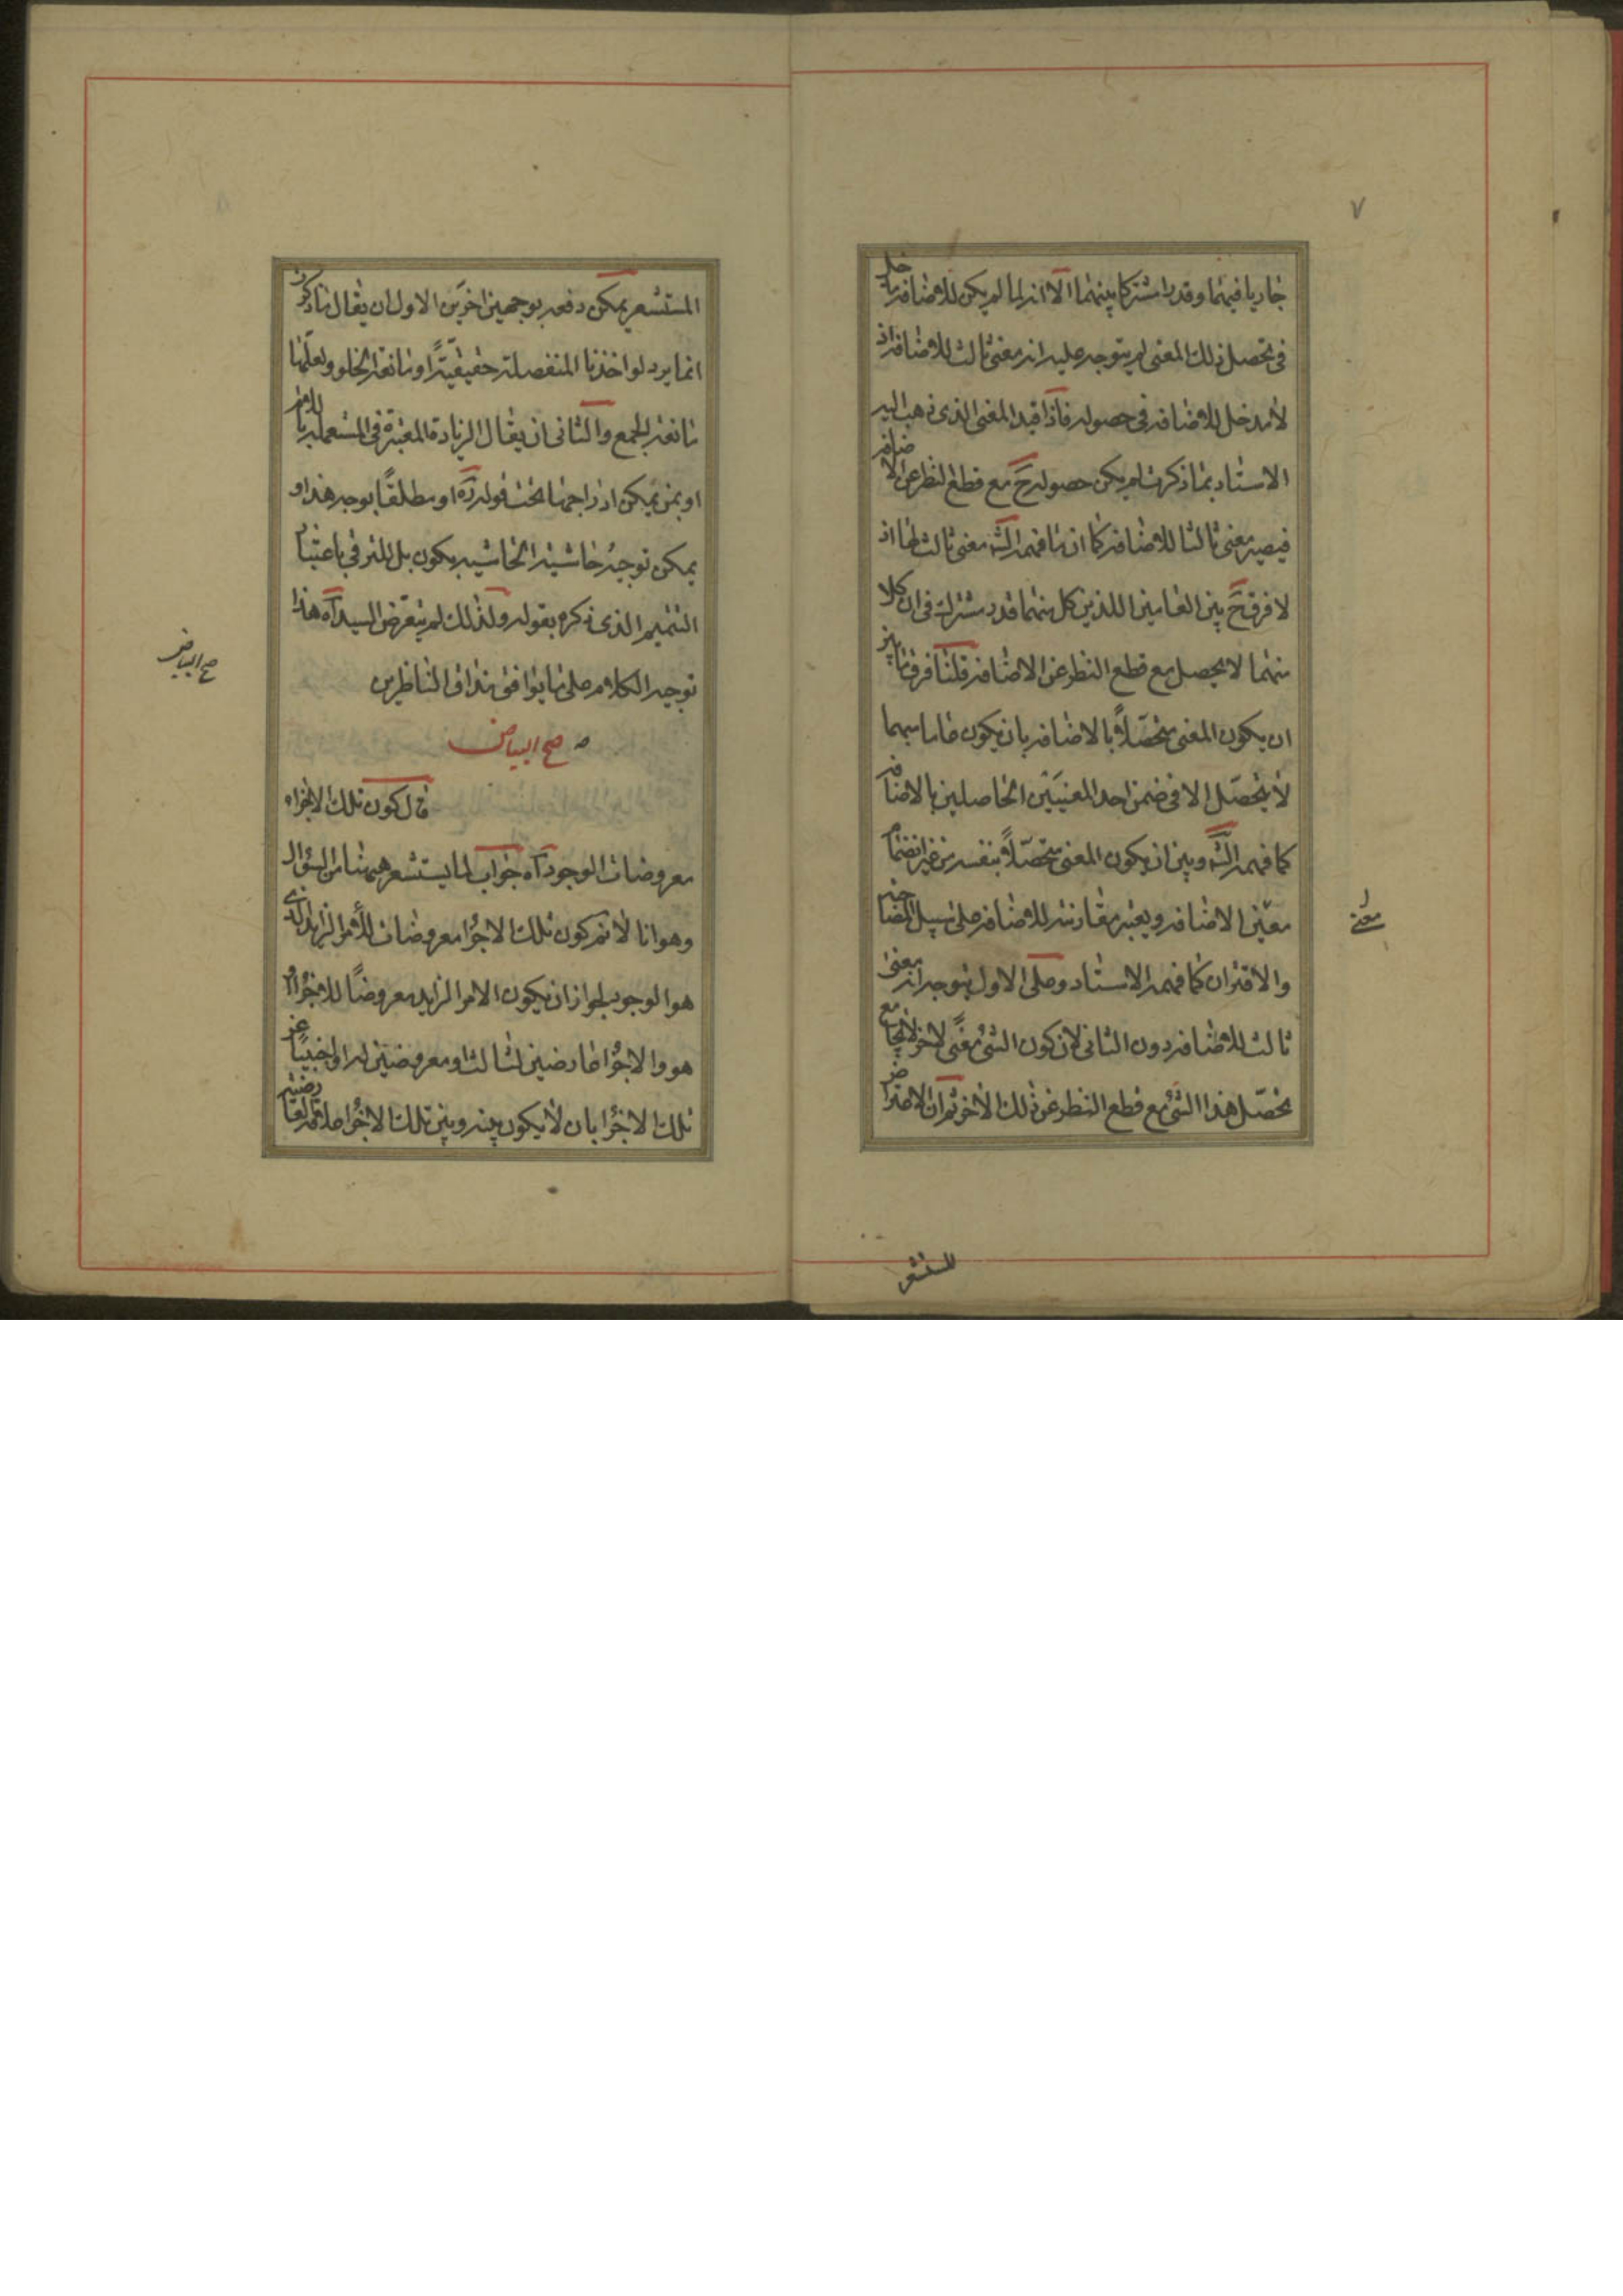 ٧
جاريا فيهما وقدرا مشتركا بينهما الا انه لما لم يكن للاضافة مدخل
فى تحصل ذلك المعنى لم يتوجه عليه انه معنى ثالث للاضافة اذ
لا مدخل للاضافة فى حصوله فاذا قيد المعنى الذى ذهب اليه
الاستاد بما ذكرت لم يكن حصوله ح مع قطع النظر عن الاضافة
فيصير معنى ثالثا للاضافة كما ان ما فهمه الش معنى ثالث لها اذ
لا فرق ح بين العامين اللذين كل منهما قدر مشترك فى ان كلا
منهما لا يحصل مع قطع النظر عن الاضافة قلنا فرق ما بين
ان يكون المعنى متحصلا بالاضافة بان يكون عاما مبهما
لا يتحصل الا فى ضمن احد المعنيين الحاصلين بالاضافة
كما فهمه الش وبين ان يكون المعنى متحصلا بنفسه من غير انضمام
معنى الاضافة ويعتبر مقارنته للاضافة على سبيل المصاحبة
معنى
والاقتران كما فهمه الاستاد وعلى الاول يتوجه انه معنى
ثالث للاضافة دون الثانى لان كون الشئ معنى لاخر لا يجامع
تحصل هذا الشئ مع قطع النظر عن ذلك الاخر ثم ان الاعتراض
المستشعر
المستشعر يمكن دفعه بوجهين اخرين الاول ان يقال ما ذكرت
انما يرد لو اخذنا المنفصلة حقيقية او مانعة الخلو ولعلها
مانعة الجمع والثانى ان يقال الزيادة المعتبرة فى المستعملة باللام
او بمن يمكن ادراجها تحت قوله اه او مطلقا بوجه هذا و
يمكن توجيه حاشية الحاشية يكون بل للترقى باعتبار
التتميم الذى ذكره بقوله ولذلك لم يتعرض السيد اه هذا
توجيه الكلام على ما يوافق مذاق الناظرين
صح البياض
صح البياض
قال كون تلك الاجزاء
معروضات الوجود اه جواب لما يستشعر ههنا من السؤال
وهو انا لا نم كون تلك الاجزا معروضات للامر الزايد الذى
هو الوجود لجواز ان يكون الامر الزايد معروضا للاجزا او
هو والاجزا عارضين لثالث او معروضين له او اجنبيا عن
تلك الاجزا بان لا يكون بينه وبين تلك الاجزا علاقة العارضية